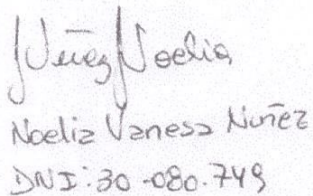 Nuñez Noelia
Noelia Vanesa Nuñez
DNI: 30.080.749